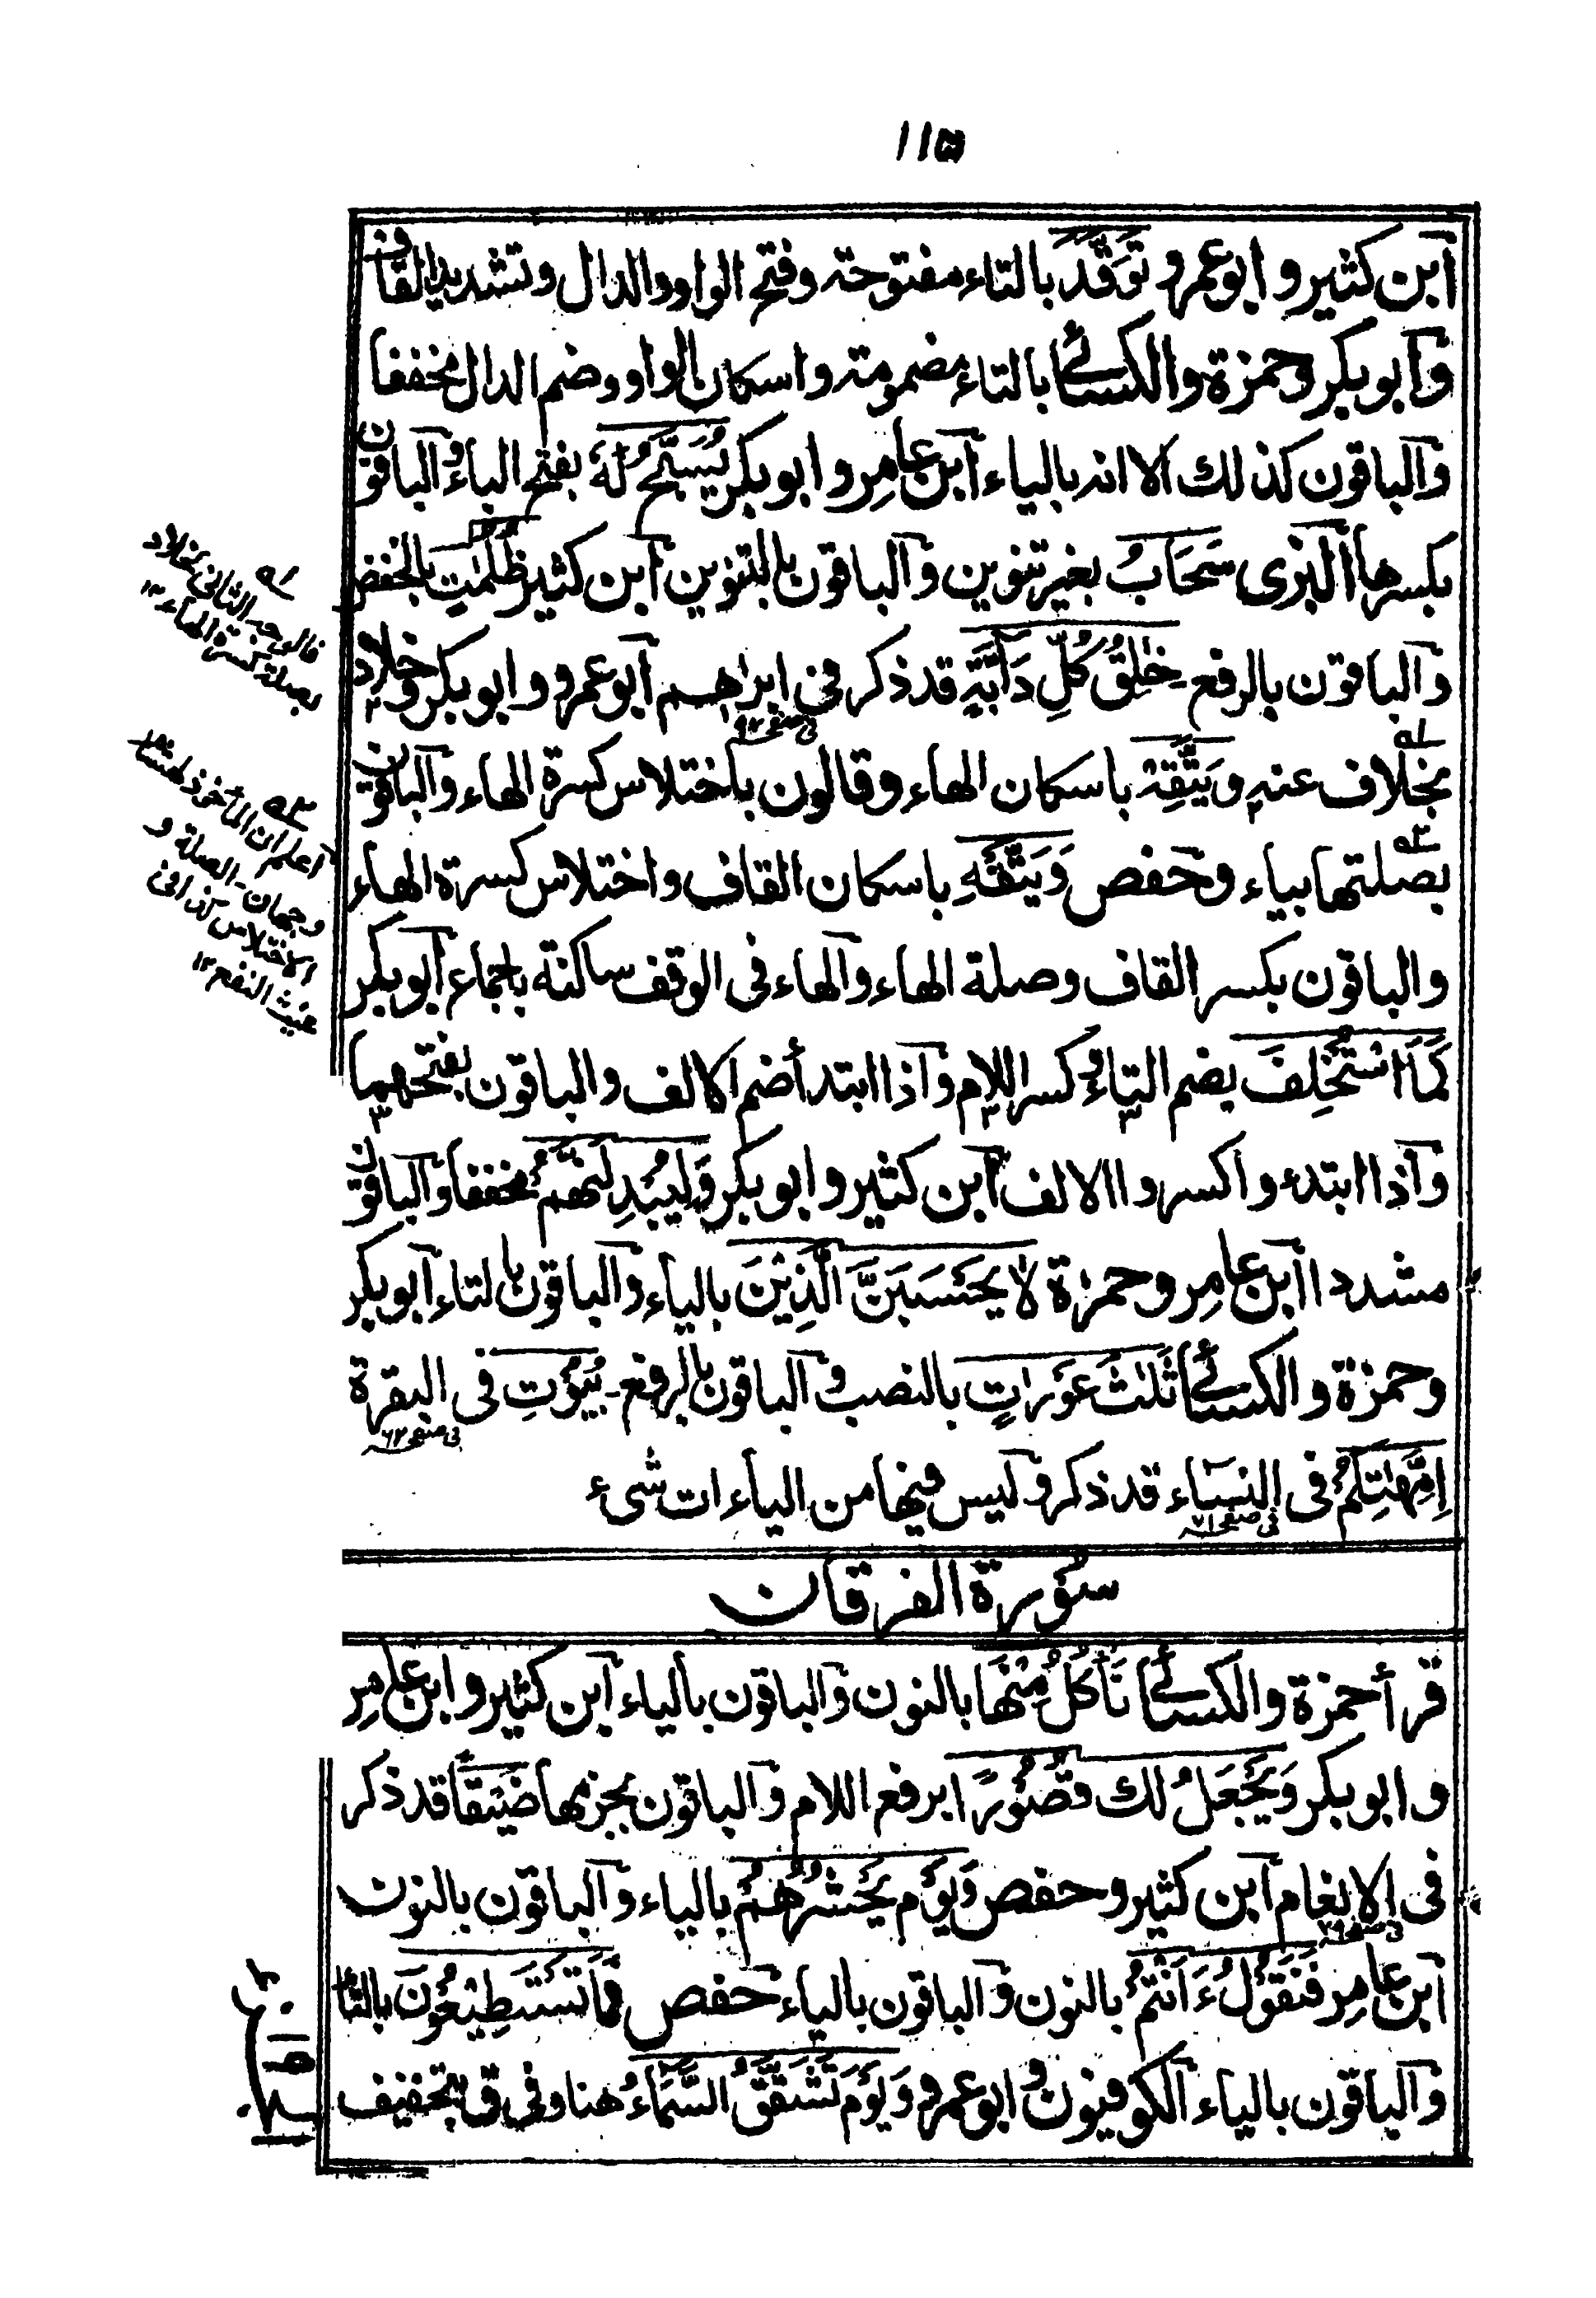 ١١٥
ابن كثير و ابو عمرو تَوَقَّدَ بالتاء مفتوحة وفتح الواو والدال وتشديد القاف
وابو بكر وحمزة والكسائي بالتاء مضمومة واسكان الواو وضم الدال مخففا
والباقون كذلك الا انه بالياء ابن عامر و ابو بكر يُسَبَّحُ لَهٗ بفتح الباء والباقون
بكسرها البزى سَحَابُ بغير تنوين والباقون بالتنوين ابن كثير ظُلُمٰتٍ بالخفض
والباقون بالرفع خٰلِقُ كُلِّ دَآبَّةٍ قد ذكر فى ابراهيم ابو عمرو و ابو بكر وخلاد
فى صفحه ٩٢
بخلاف عنه وَيَتَّقِهْ باسكان الهاء وقالون باختلاس كسرة الهاء والباقون
بصلتها بياء وحفص وَيَتَّقْهِ باسكان القاف واختلاس كسرة الهاء
والباقون بكسر القاف وصلة الهاء والهاء فى الوقف ساكنة باجماع ابو بكر
كَمَا اسْتُخْلِفَ بضم التاء وكسر اللام واذا ابتدأ ضم الالف والباقون بفتحهما
واذا ابتدء وا كسر وا الالف ابن كثير و ابو بكر وَلَيُبْدِلَنَّهُمْ مخففا والباقون
مشددا ابن عامر وحمزة لَا يَحْسَبَنَّ الَّذِيْنَ بالياء والباقون بالتاء ابو بكر
وحمزة والكسائي ثَلٰثَ عَوْرَاتٍ بالنصب والباقون بالرفع بُيُوْتِ فى البقرة
فى صفحه ٦٢
اِمَّهٰتِكُمْ فى النساء قد ذكر وليس فيها من الياءات شىء
فى صفحه ٧١
سُوْرة الفرقان
قرأ حمزة والكسائي نَأْكُلُ مِنْهَا بالنون والباقون بالياء ابن كثير و ابن عامر
و ابو بكر وَيَجْعَلُ لك قُصُوْرًا برفع اللام والباقون بجزمها ضَيْقًا قد ذكر
فى الانعام ابن كثير وحفص وَيَوْمَ يَحْشُرُهُمْ بالياء والباقون بالنون
فى صفحه ٧٩
ابن عامر فَنَقُوْلُ ءَاَنْتُمْ بالنون والباقون بالياء حفص فَمَا تَسْتَطِيْعُوْنَ بالتاء
والباقون بالياء الكوفيون و ابو عمرو وَيَوْمَ تَشَقَّقُ السَّمَآءُ هنا وفى ق بتخفيف
١ه
فالوجه الثانى لخلاد
بصلة كسرة الهاء ١٢
٣ه
اعلم ان المأخوذ لهشام
وجهان الصلة و
الاختلاس كذا فى
غيث النفع ١٢